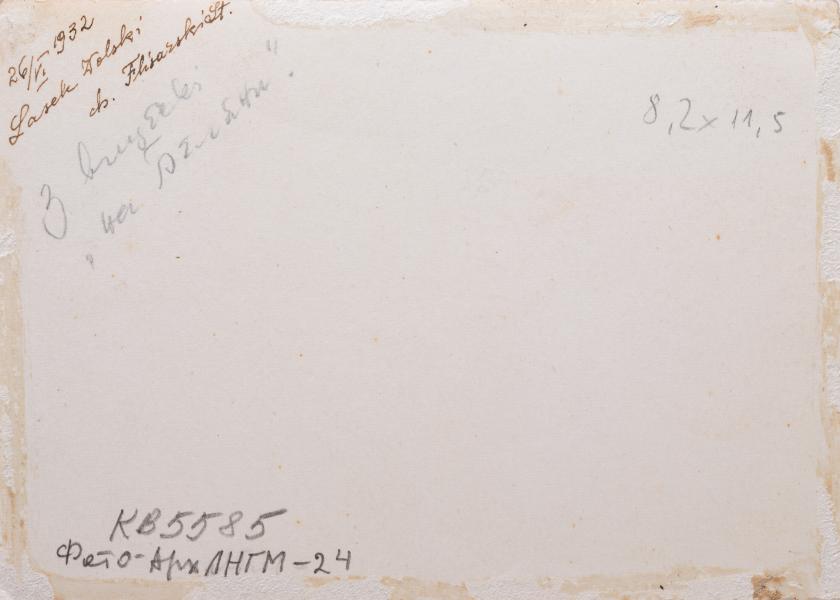 26/VI 1932
Lasek Dolski
ch. Flisarski St.
З
"на
8,2 x 11,5
КВ5585
Фото-Арх ЛНГМ-24